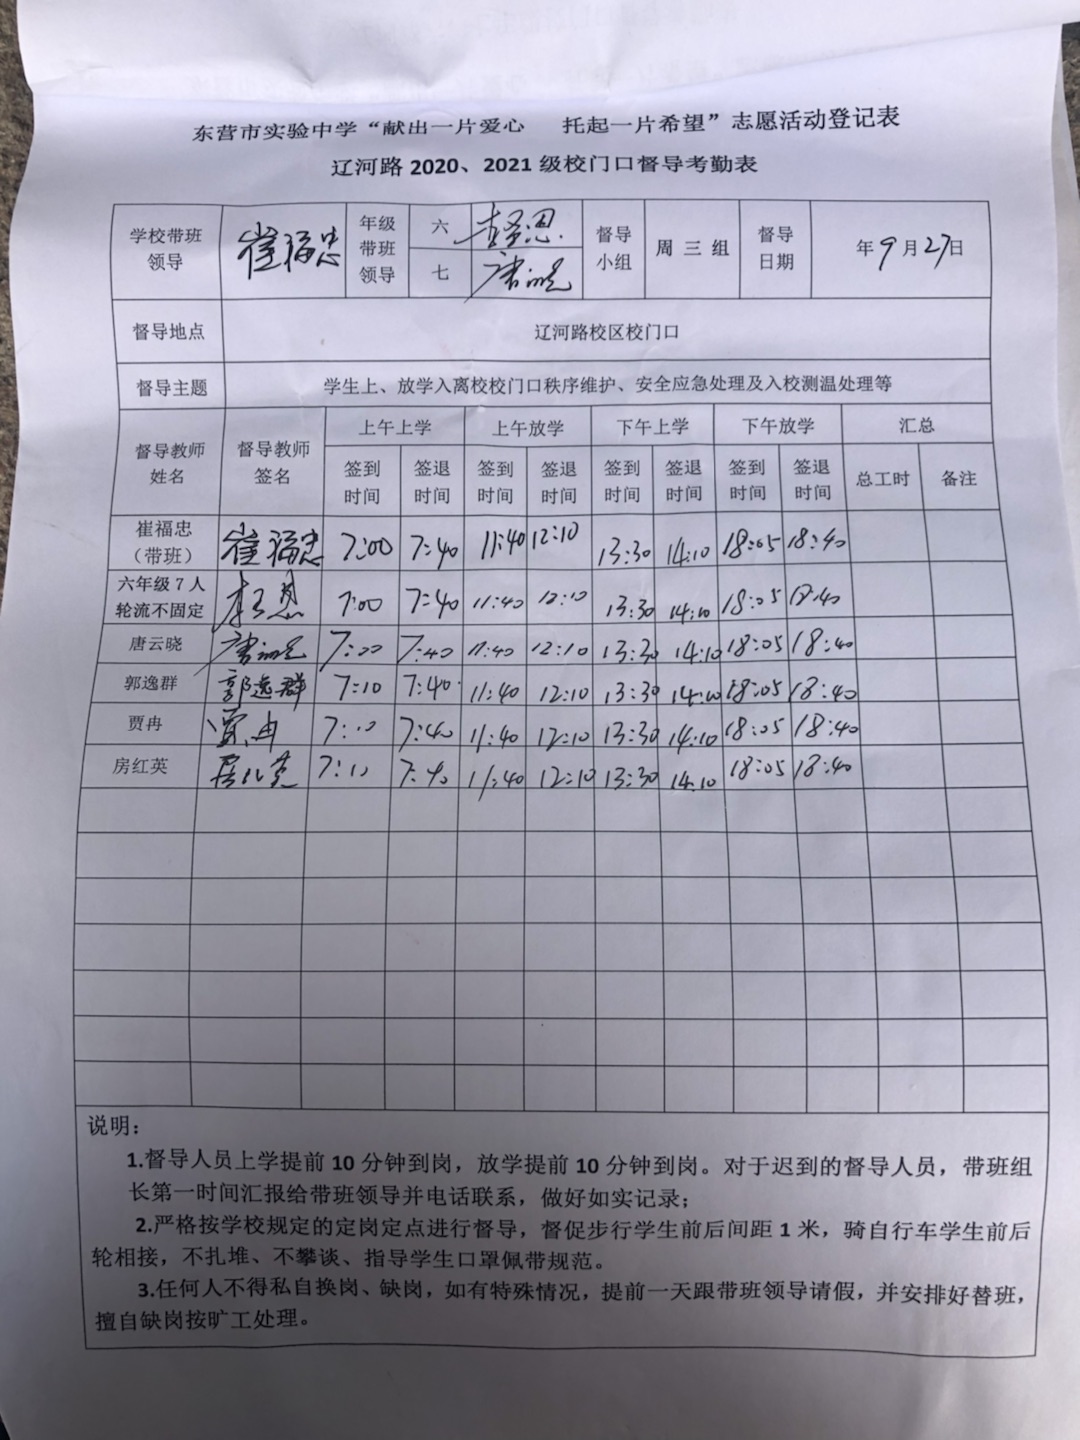 东营市实验中学“献出一片爱心 托起一片希望”志愿活动登记表
辽河路 2020、2021 级校门口督导考勤表
学校带班领导 崔福忠 年级带班领导 六 七 唐云晓 督导小组 周三组 督导日期 年9月27日
督导地点 辽河路校区校门口
督导主题 学生上、放学入离校校门口秩序维护、安全应急处理及入校测温处理等
督导教师姓名 督导教师签名 上午上学 上午放学 下午上学 下午放学 汇总
签到时间 签退时间 签到时间 签退时间 签到时间 签退时间 签到时间 签退时间 总工时 备注
崔福忠（带班） 崔福忠 7:00 7:40 11:40 12:10 13:30 14:10 18:05 18:40
六年级 7 人轮流不固定 7:00 7:40 11:40 12:10 13:30 14:10 18:05 18:40
唐云晓 唐云晓 7:00 7:40 11:40 12:10 13:30 14:10 18:05 18:40
郭逸群 郭逸群 7:10 7:40 11:40 12:10 13:30 14:10 18:05 18:40
贾冉 贾冉 7:10 7:40 11:40 12:10 13:30 14:10 18:05 18:40
房红英 房红英 7:10 7:40 11:40 12:10 13:30 14:10 18:05 18:40
说明：
1.督导人员上学提前 10 分钟到岗，放学提前 10 分钟到岗。对于迟到的督导人员，带班组
长第一时间汇报给带班领导并电话联系，做好如实记录；
2.严格按学校规定的定岗定点进行督导，督促步行学生前后间距 1 米，骑自行车学生前后
轮相接，不扎堆、不攀谈、指导学生口罩佩带规范。
3.任何人不得私自换岗、缺岗，如有特殊情况，提前一天跟带班领导请假，并安排好替班，
擅自缺岗按旷工处理。